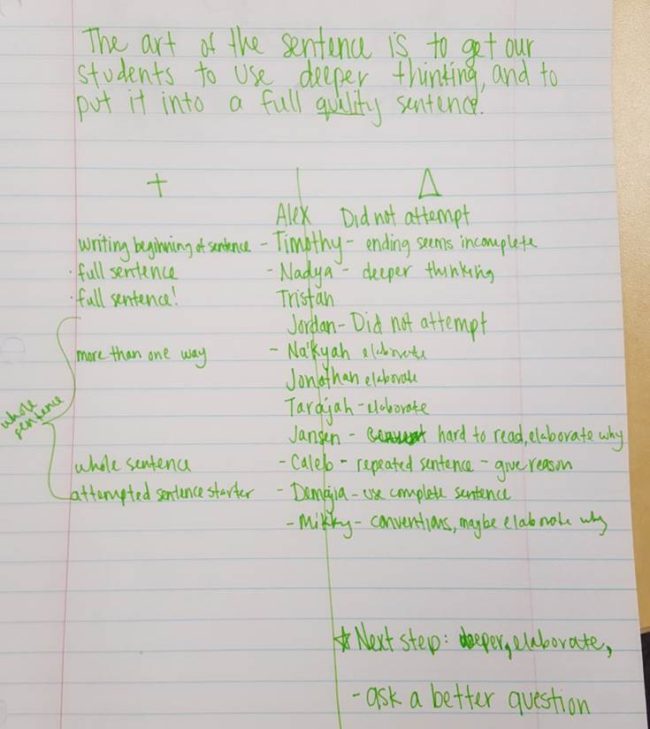 The art of the sentence is to get our
students to use deeper thinking, and to
put it into a full quality sentence.
+ Δ
Alex Did not attempt
writing beginning of sentence - Timothy - ending seems incomplete
· full sentence - Nadya - deeper thinking
· full sentence! Tristan
Jordan - Did not attempt
more than one way - Na'Kyah elaborate
Jonathan elaborate
Tarajah - elaborate
whole
sentence
Jansen - hard to read, elaborate why
whole sentence - Caleb - repeated sentence - give reason
attempted sentence starter - Demajia - use complete sentence
- Mikky - conventions, maybe elaborate why
☆ Next step: deeper, elaborate,
- ask a better question